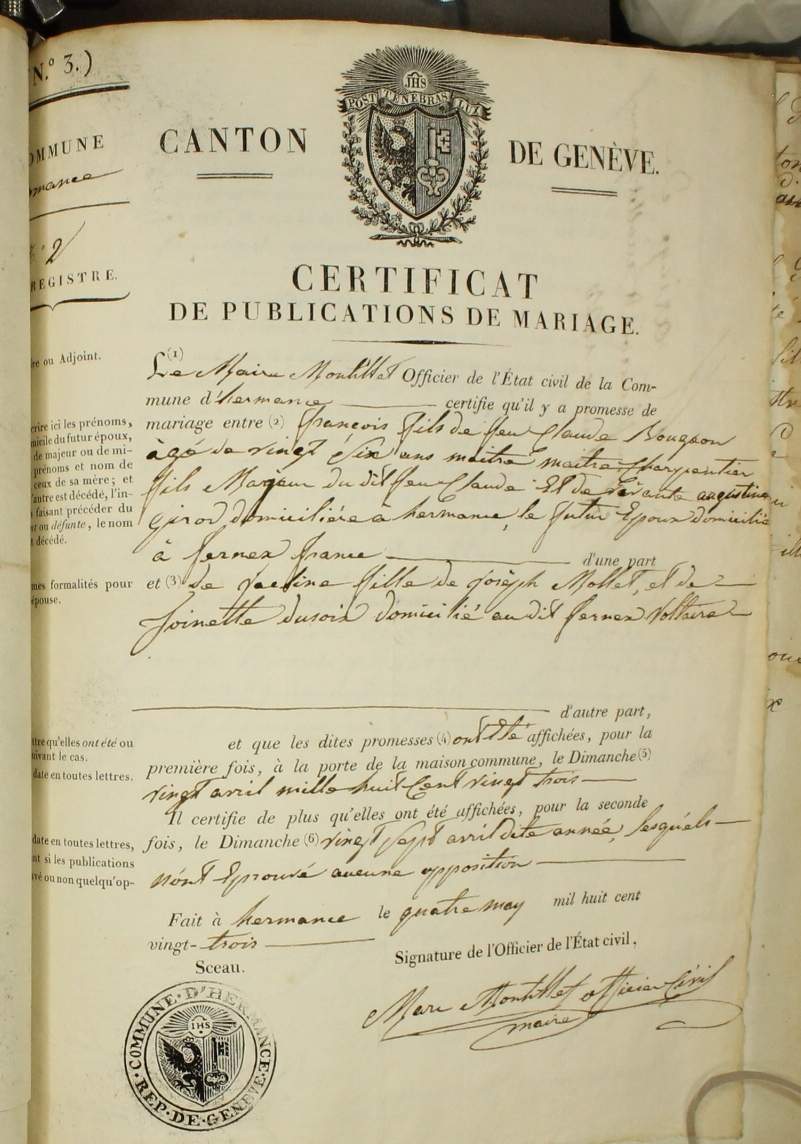 N.º 3.)
OMMUNE
2
REGISTRE.
JHS
POST TENEBRAS LUX
CANTON DE GENÈVE.
CERTIFICAT
DE PUBLICATIONS DE MARIAGE.
ou Adjoint.
(1)
Le Maire Montillet Officier de l'État civil de la Com-
mune d'hermance certifie qu'il y a promesse de
mariage entre (2) françois fils de feu Claude Bougeon
âgé de vingt six ans maitre maitre Charpentier
fils Majeur du dit feu Claude Et de vivante augustine
girod domiciliée à hermance, le futur Epoux domicilié
à fernex france d'une part
et (3) de fille de Joseph Mollet, et de
domicilié au dit fernex Voltaire
d'autre part,
et que les dites promesses (4) ont été affichées, pour la
première fois, à la porte de la maison commune, le Dimanche (5)
vingt avril mille huit Cent vingt trois
Il certifie de plus qu'elles ont été affichées, pour la seconde
fois, le Dimanche (6) vingt sept avril dite année, lesquéls
nónt Eprouvé aucune opposition
Fait à hermance le quatre may mil huit cent
vingt-trois
Sceau.
Signature de l'Officier de l'État civil.
Marc Montillet officier Civil
maire
COMMUNE D'HERMANCE
IHS
REP. DE GENÈVE
ici les prénoms,
du futur époux,
de majeur ou de mi-
prénoms et nom de
ceux de sa mère; et
l'autre est décédé, l'in-
faisant précéder du
ou défunte, le nom
décédé.
formalités pour
épouse.
qu'elles ont été ou
le cas.
date en toutes lettres.
date en toutes lettres,
si les publications
ou non quelqu'op-